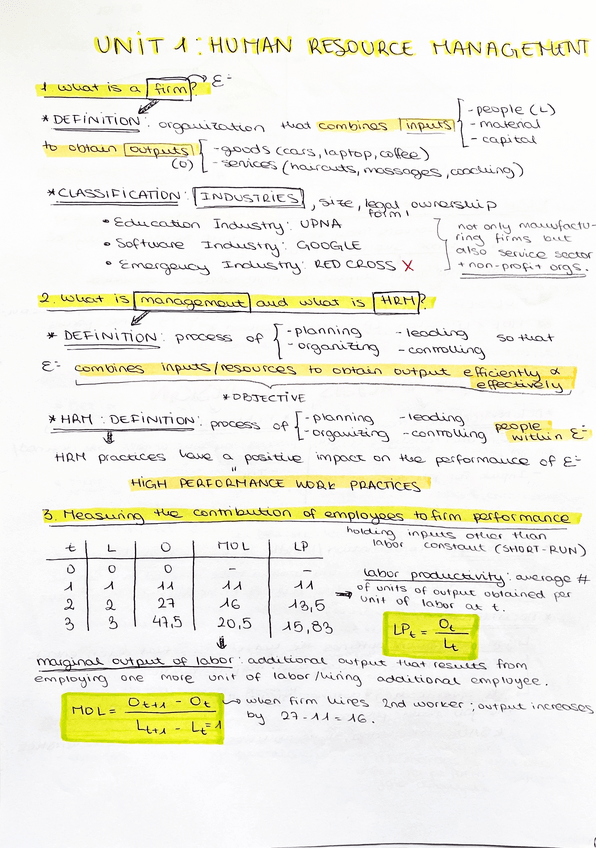 UNIT 1: HUMAN RESOURCE MANAGEMENT
1 what is a firm? → Ɛ=
* DEFINITION: organization that combines inputs { - people (L)
- material
- capital
to obtain outputs (O) { - goods (cars, laptop, coffee)
- services (haircuts, massages, coaching)
* CLASSIFICATION: INDUSTRIES, size, legal form, ownership
• Education Industry: UPNA
• Software Industry: GOOGLE
• Emergency Industry: RED CROSS X
not only manufactu-
ring firms but
also service sector
+ non-profit orgs.
2. what is management and what is HRM?
* DEFINITION: process of { - planning - leading so that
- organizing - controlling
Ɛ= combines inputs/resources to obtain output efficiently &
effectively
* OBJECTIVE
* HRM: DEFINITION: process of { - planning - leading people
- organizing - controlling within Ɛ=
HRM practices have a positive impact on the performance of Ɛ=
"
HIGH PERFORMANCE WORK PRACTICES
3. Measuring the contribution of employees to firm performance
holding inputs other than
labor constant (SHORT-RUN)
t | L | O | MOL | LP
0 0 0 - -
1 1 11 11 11
2 2 27 16 13,5
3 3 47,5 20,5 15,83
labor productivity: average #
of units of output obtained per
unit of labor at t.
LPt = Ot / Lt
marginal output of labor: additional output that results from
employing one more unit of labor/hiring additional employee.
MOL = Ot+1 - Ot / Lt+1 - Lt = 1
→ when firm hires 2nd worker; output increases
by 27-11 = 16.